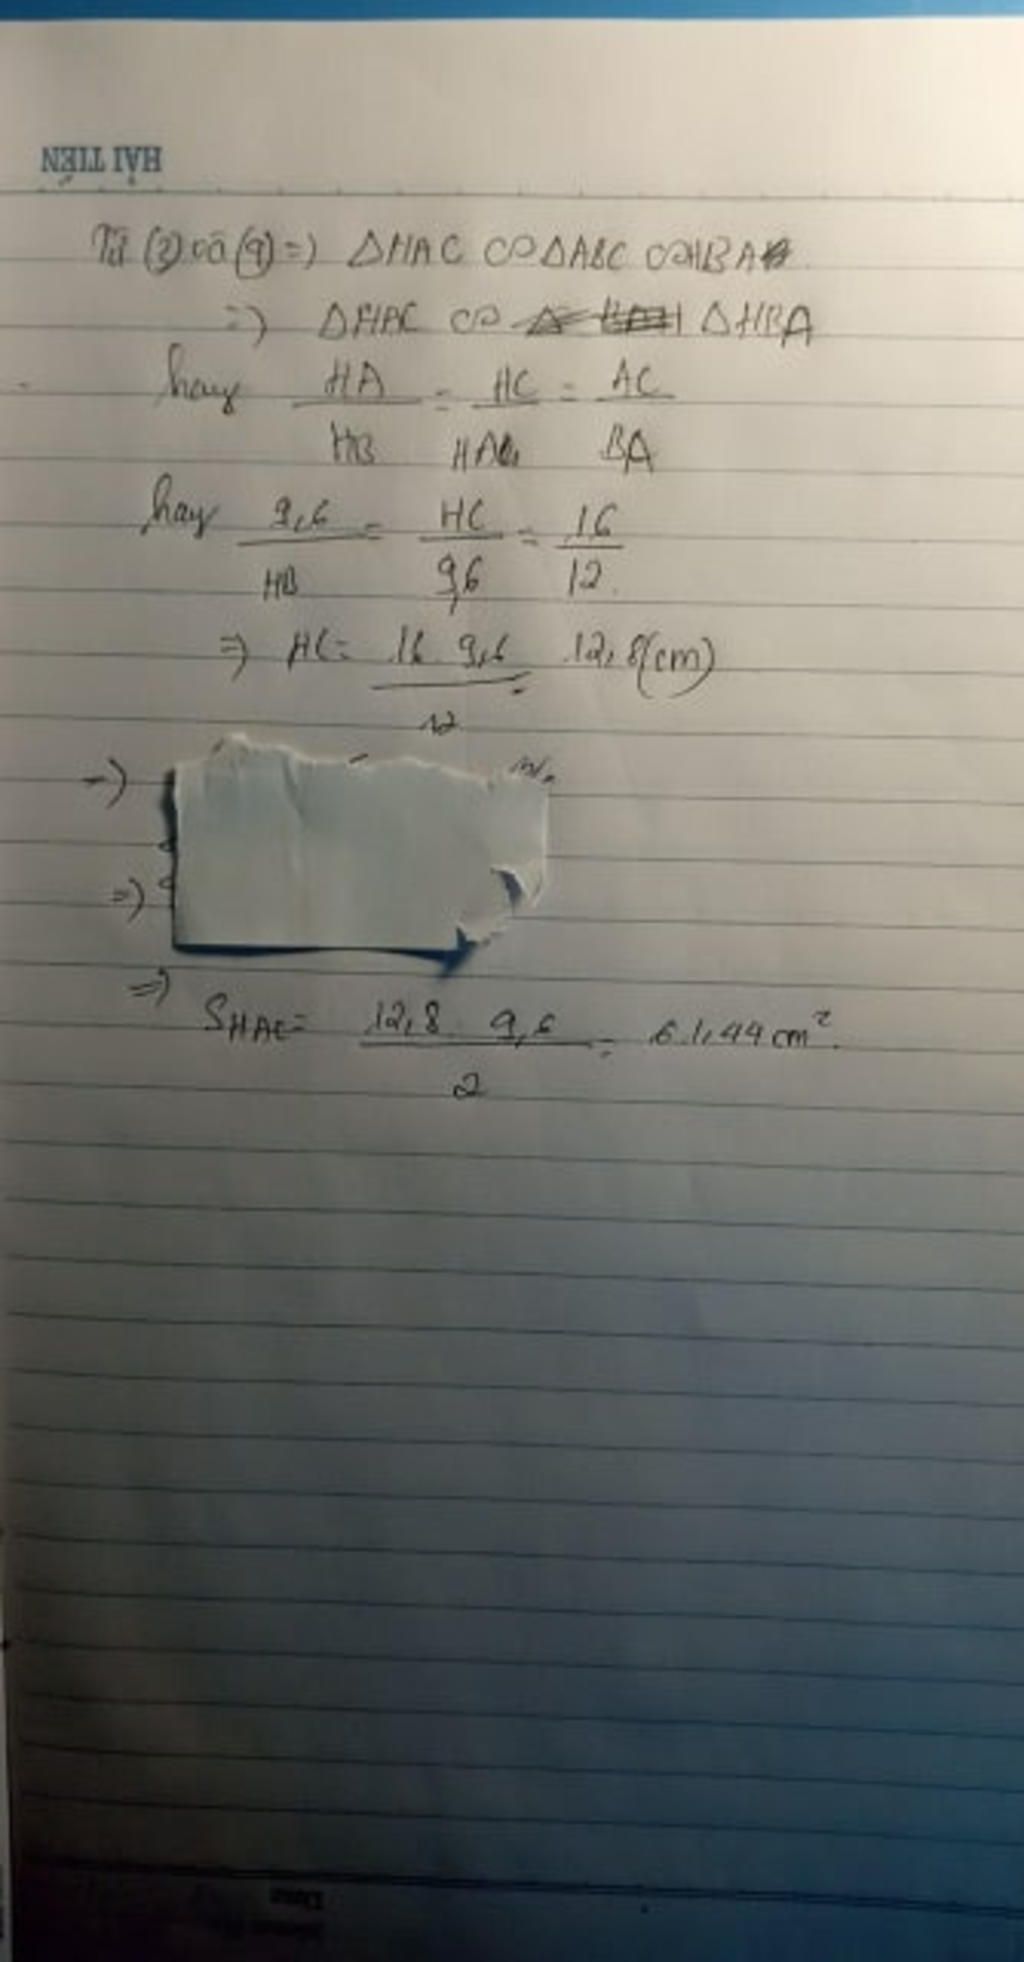 HẢI TIẾN
Từ (3) và (4) => ΔHAC ∽ ΔABC ∽ HBA
=> ΔHAC ∽ ΔHBA
hay HA/HB = HC/HA = AC/BA
hay 9,6/HB = HC/9,6 = 16/12
=> HC = 16.9,6/12 = 12,8(cm)
=>
=>
=> SHAC = 12,8.9,6/2 = 61,44 cm²